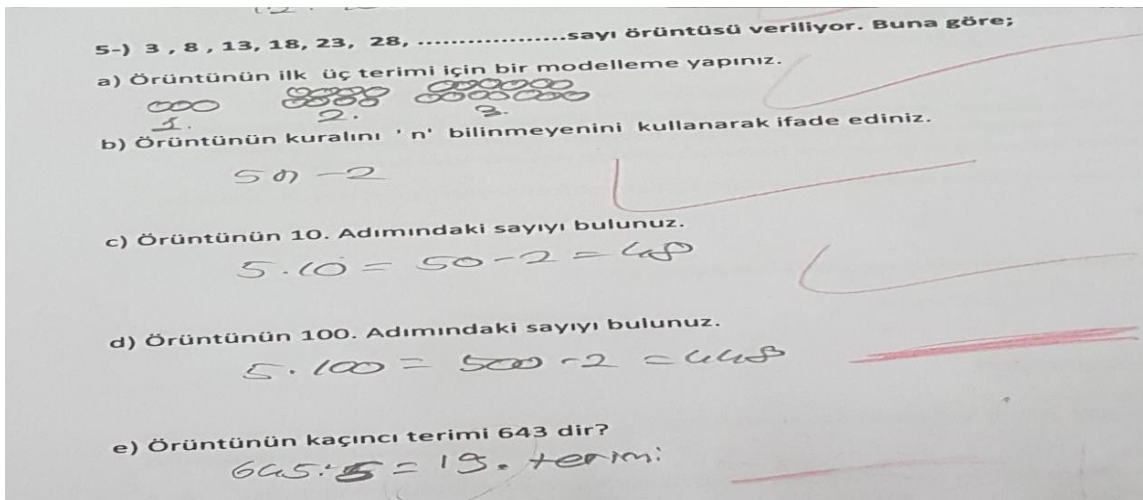 5-) 3 , 8 , 13, 18, 23, 28, ..................sayı örüntüsü veriliyor. Buna göre;
a) Örüntünün ilk üç terimi için bir modelleme yapınız.
1. 2. 3.
b) Örüntünün kuralını ' n' bilinmeyenini kullanarak ifade ediniz.
5n -2
c) Örüntünün 10. Adımındaki sayıyı bulunuz.
5.10 = 50-2 = 48
d) Örüntünün 100. Adımındaki sayıyı bulunuz.
5.100 = 500 -2 = 448
e) Örüntünün kaçıncı terimi 643 dir?
645:5 = 19. terimi